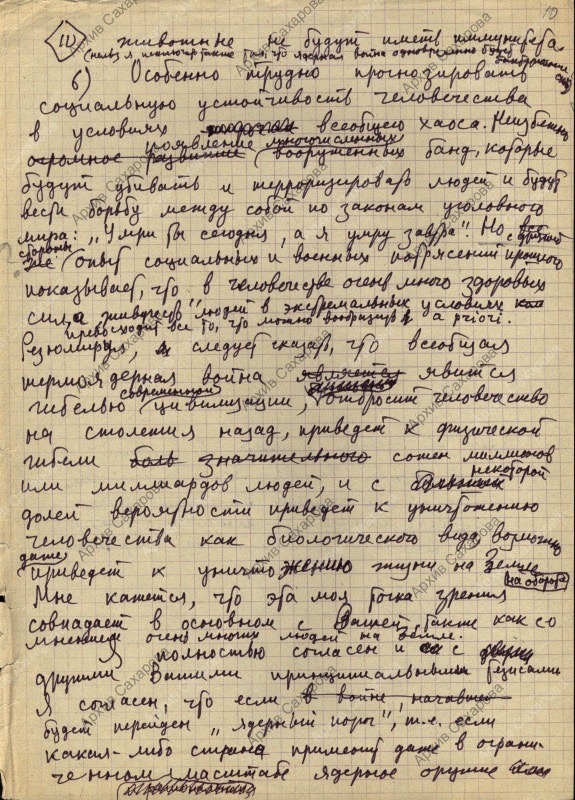 11 животные не будут иметь иммунитета 10
(нельзя исключить также, что ядерная война одновременно будет бактериологической)
б) Особенно трудно прогнозировать
социальную устойчивость человечества
в условиях всеобщего хаоса. Неизбежно
появление многочисленных
огромное развитие вооруженных банд, которые
будут убивать и терроризировать людей и будут
вести борьбу между собой по законам уголовного
мира: „Умри ты сегодня, а я умру завтра". Но с другой
стороны
же опыт социальных и военных потрясений прошлого
показывает, что в человечестве очень много здоровых
сил, а „живучесть" людей в экстремальных условиях
превосходит все то, что можно вообразить a priori.
Резюмируя, следует сказать, что всеобщая
термоядерная война является явится
современной
гибелью цивилизации, отбросит человечество
на столетия назад, приведет к физической
гибели значительного сотен миллионов
или миллиардов людей, и с некоторой
долей вероятности приведет к уничтожению
человечества как биологического вида, возможно
даже
приведет к уничтожению жизни на Земле
на обороте
Мне кажется, что эта моя точка зрения
совпадает в основном с Вашей, также как со
мнением очень многих людей на Земле.
Я полностью согласен и с
другими Вашими принципиальными тезисами
Я согласен, что если в войне, начавшей
будет перейден „ядерный порог", т.е. если
какая-либо страна применит даже в ограни-
ченном масштабе ядерное оружие
Архив Сахарова